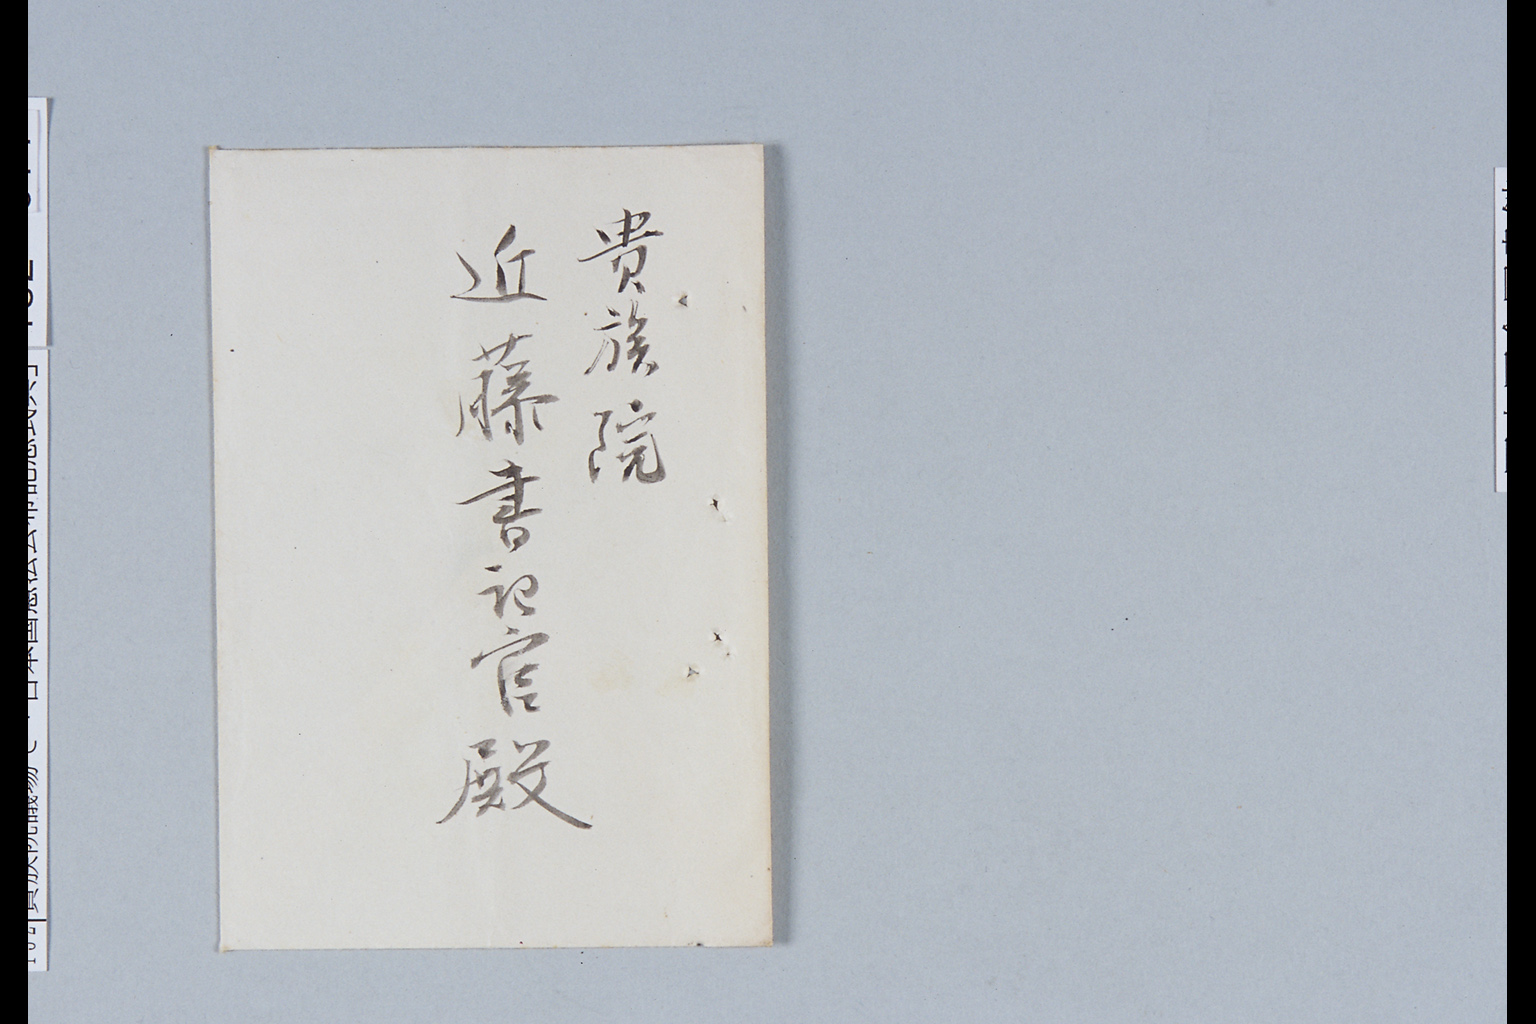 貴族院
近藤書記官殿